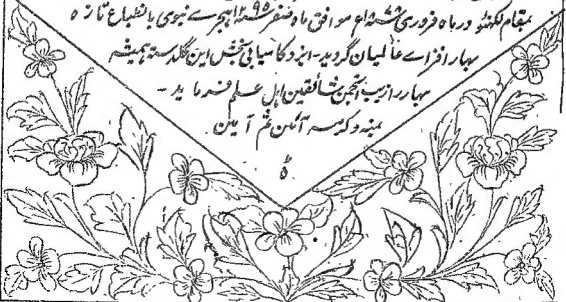 بمقام لکھنؤ در ماه فروری ۱۸۷۸ء موافق ماه صفر ۱۲۹۵ ہجرے نبوی بانطباع تازه
بہار افزاے عالمیان گردید - ایزد کامیابی بخش این گلدستہ ہمیشہ
بہار را زیب انجمن شائقین اہل علم فرماید -
بمنہ و کرمہ آمین ثم آمین